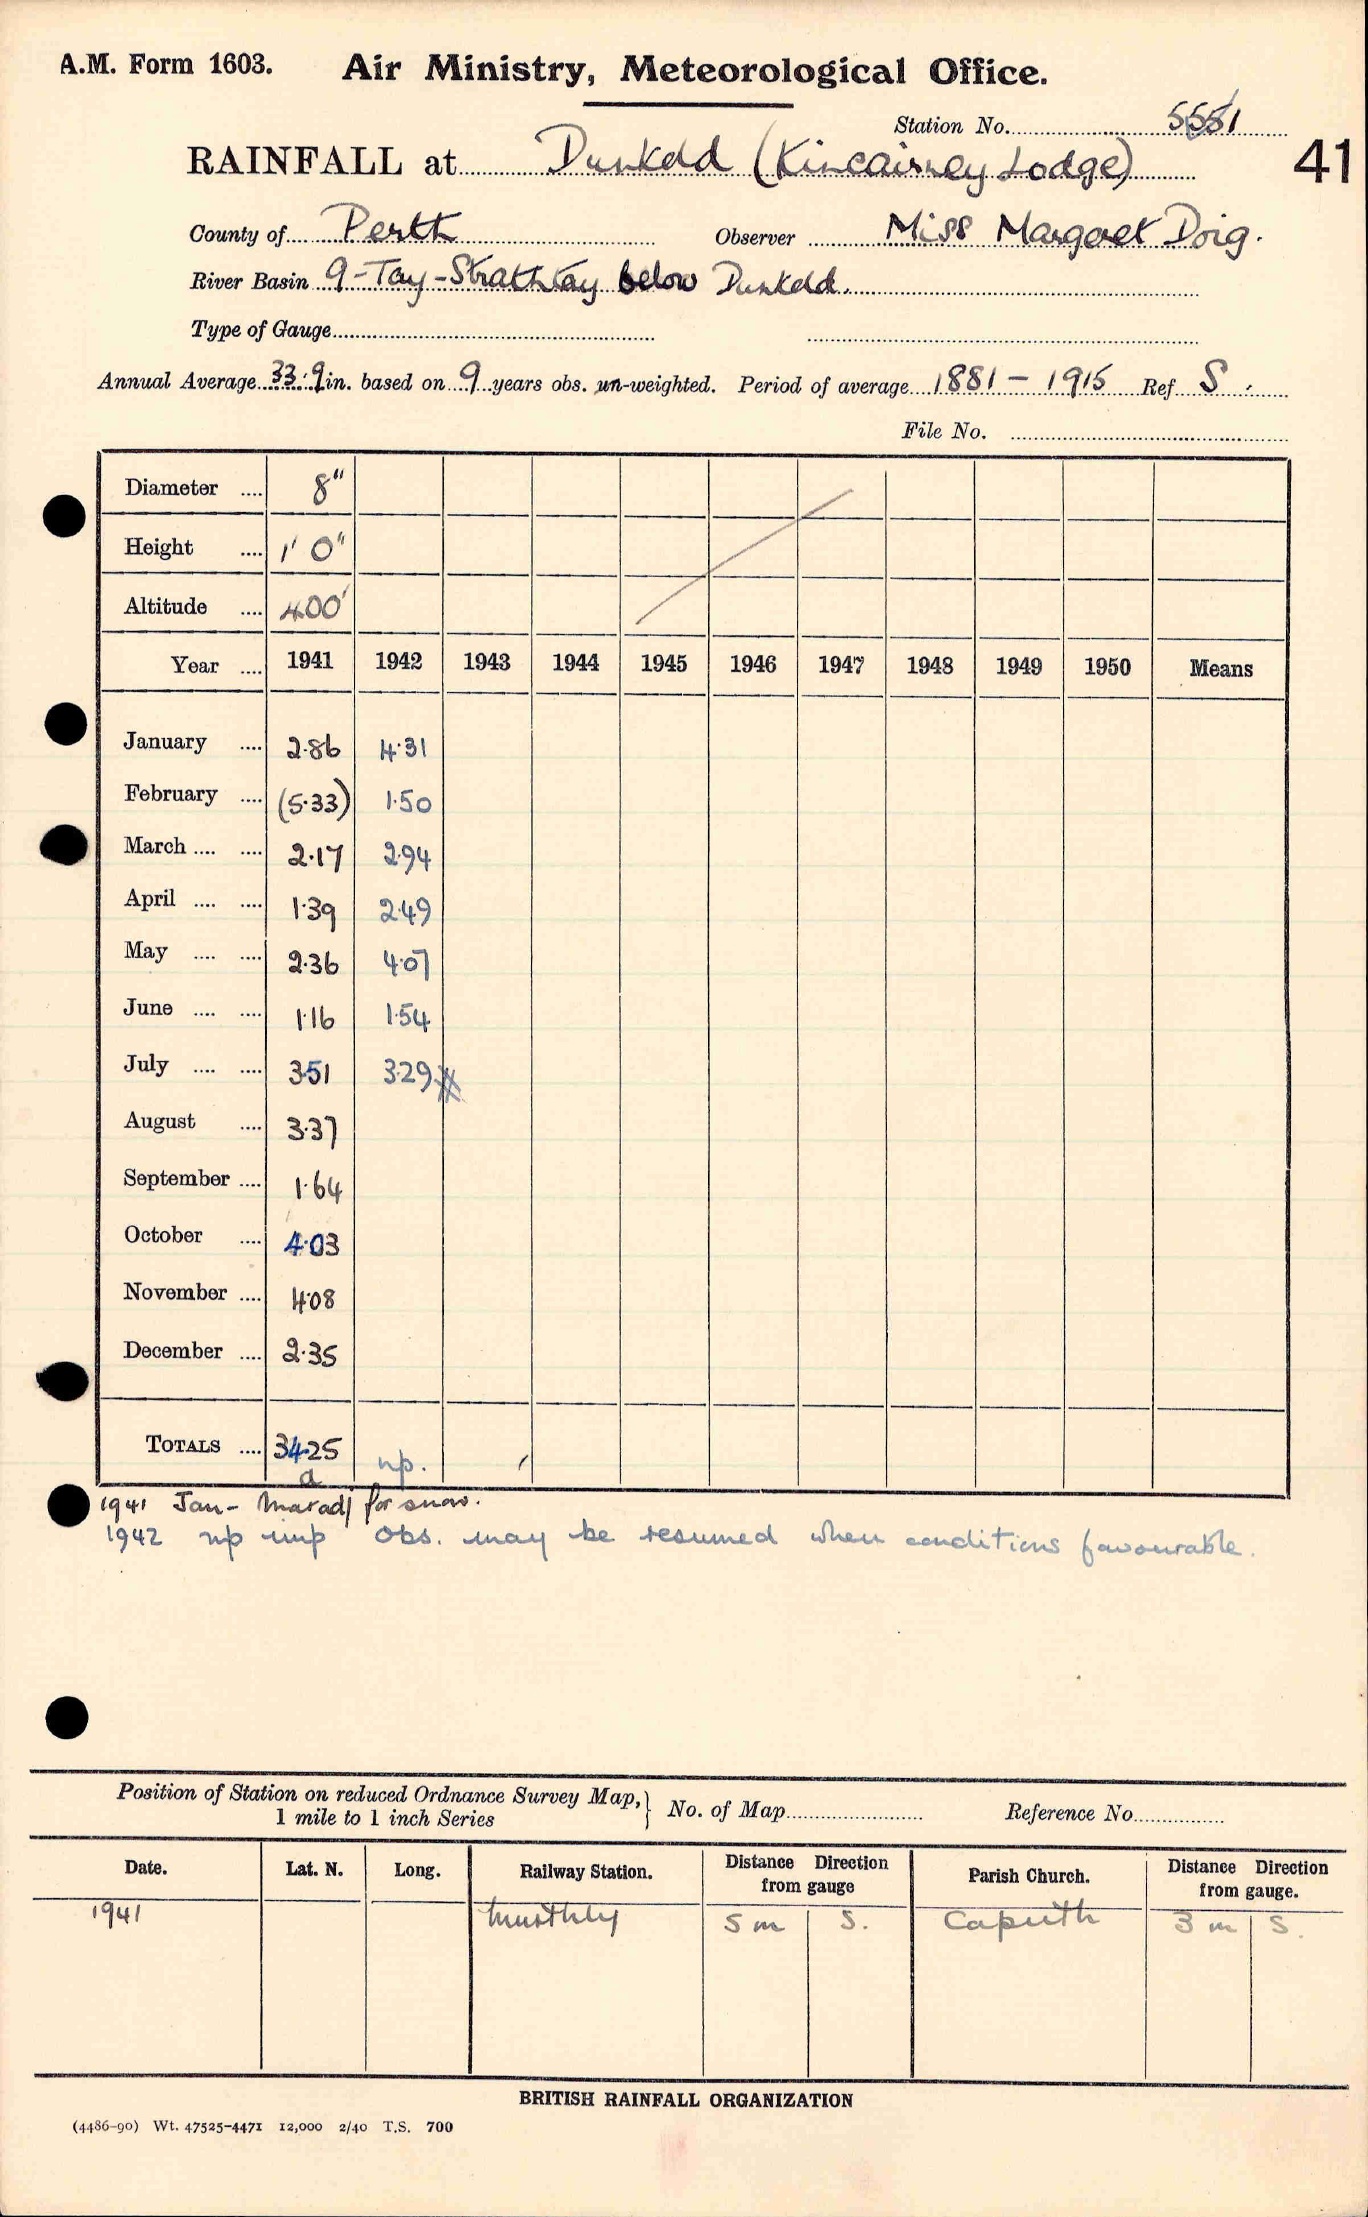 A.M. Form 1603. Air Ministry, Meteorological Office.
Station No. 5551
RAINFALL at Dunkeld (Kincairney Lodge)
41
County of Perth Observer Miss Margaret Doig.
River Basin 9-Tay-Strathtay below Dunkeld.
Type of Gauge
Annual Average 33.9 in. based on 9 years obs. un-weighted. Period of average 1881 - 1915 Ref S.
File No.
Diameter .... 8"
Height .... 1' 0"
Altitude .... 400'
Year .... 1941 1942 1943 1944 1945 1946 1947 1948 1949 1950 Means
January .... 2.86 4.31
February .... (5.33) 1.50
March .... .... 2.17 2.94
April .... .... 1.39 2.49
May .... .... 2.36 4.07
June .... .... 1.16 1.54
July .... .... 3.51 3.29
August .... 3.37
September .... 1.64
October .... 4.03
November .... 4.08
December .... 2.35
TOTALS .... 34.25 np.
a
1941 Jan- for snow.
1942 np imp Obs. may be resumed when conditions favourable.
Position of Station on reduced Ordnance Survey Map, } No. of Map Reference No.
1 mile to 1 inch Series
Date. Lat. N. Long. Railway Station. Distance Direction from gauge Parish Church. Distance Direction from gauge.
1941 Murthly 5 m S. Caputh 3 m S.
BRITISH RAINFALL ORGANIZATION
(4486-90) Wt. 47525-4471 12,000 2/40 T.S. 700